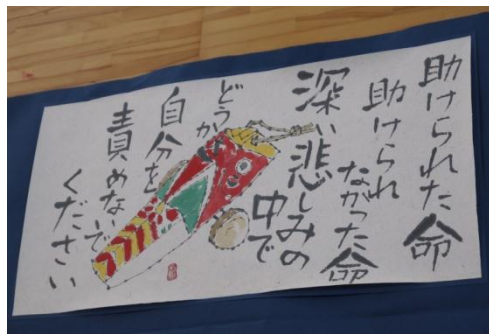 助けられた命
助けられ
なかった命
深い悲しみの
中で
どうか
自分を
責めないで
ください